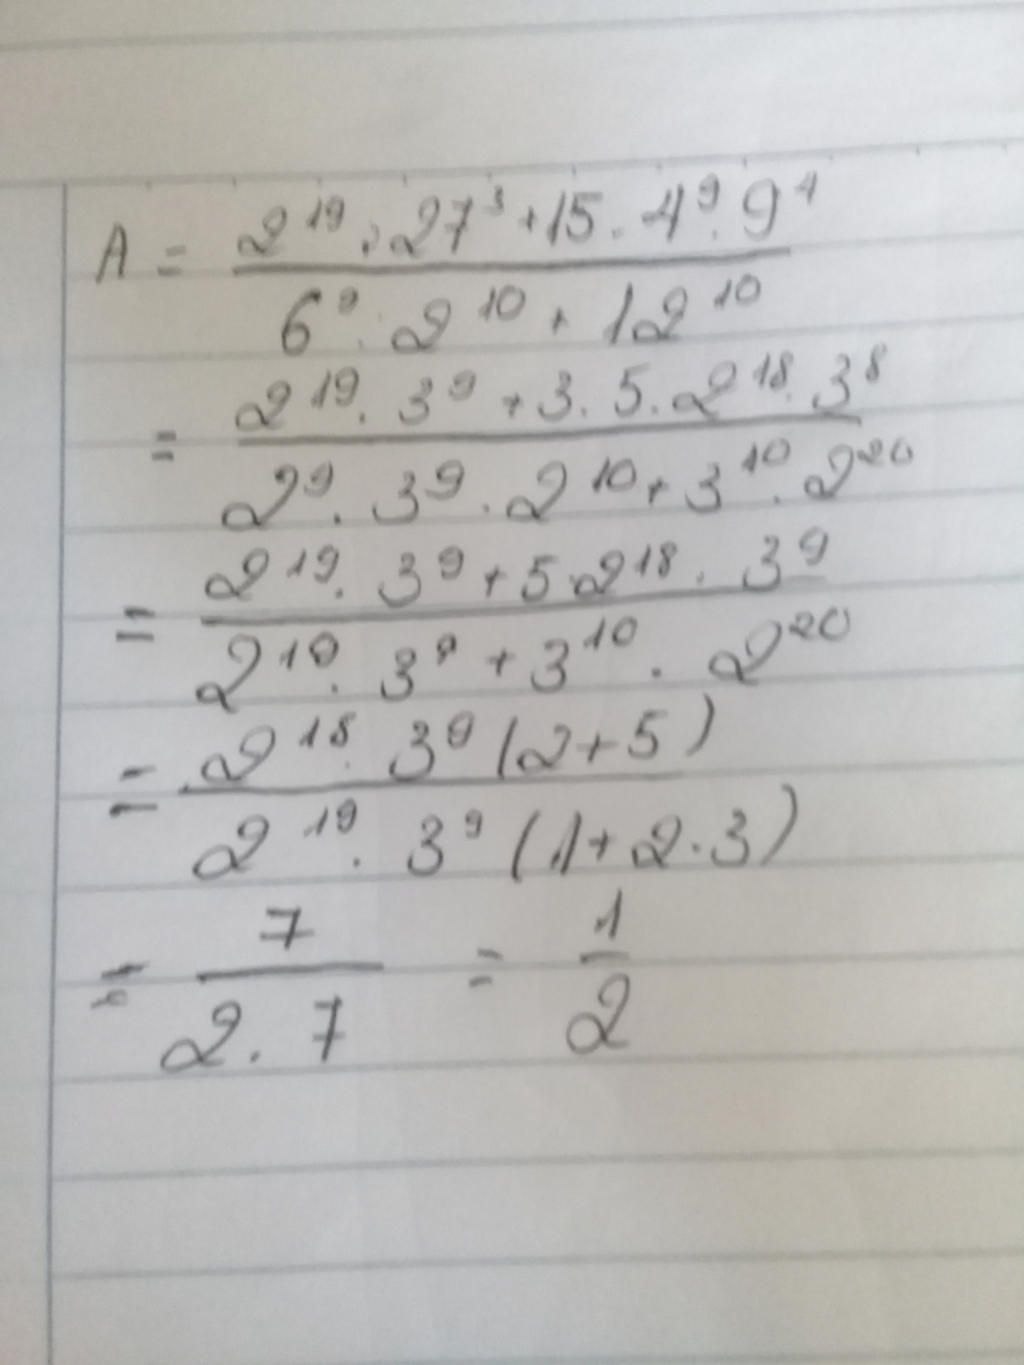 A = \frac{2^{19} \cdot 27^3 + 15 \cdot 4^9 \cdot 9^4}{6^9 \cdot 2^{10} + 12^{10}}
= \frac{2^{19} \cdot 3^9 + 3 \cdot 5 \cdot 2^{18} \cdot 3^8}{2^9 \cdot 3^9 \cdot 2^{10} + 3^{10} \cdot 2^{20}}
= \frac{2^{19} \cdot 3^9 + 5 \cdot 2^{18} \cdot 3^9}{2^{19} \cdot 3^9 + 3^{10} \cdot 2^{20}}
= \frac{2^{18} \cdot 3^9 (2+5)}{2^{19} \cdot 3^9 (1+2 \cdot 3)}
= \frac{7}{2 \cdot 7} = \frac{1}{2}